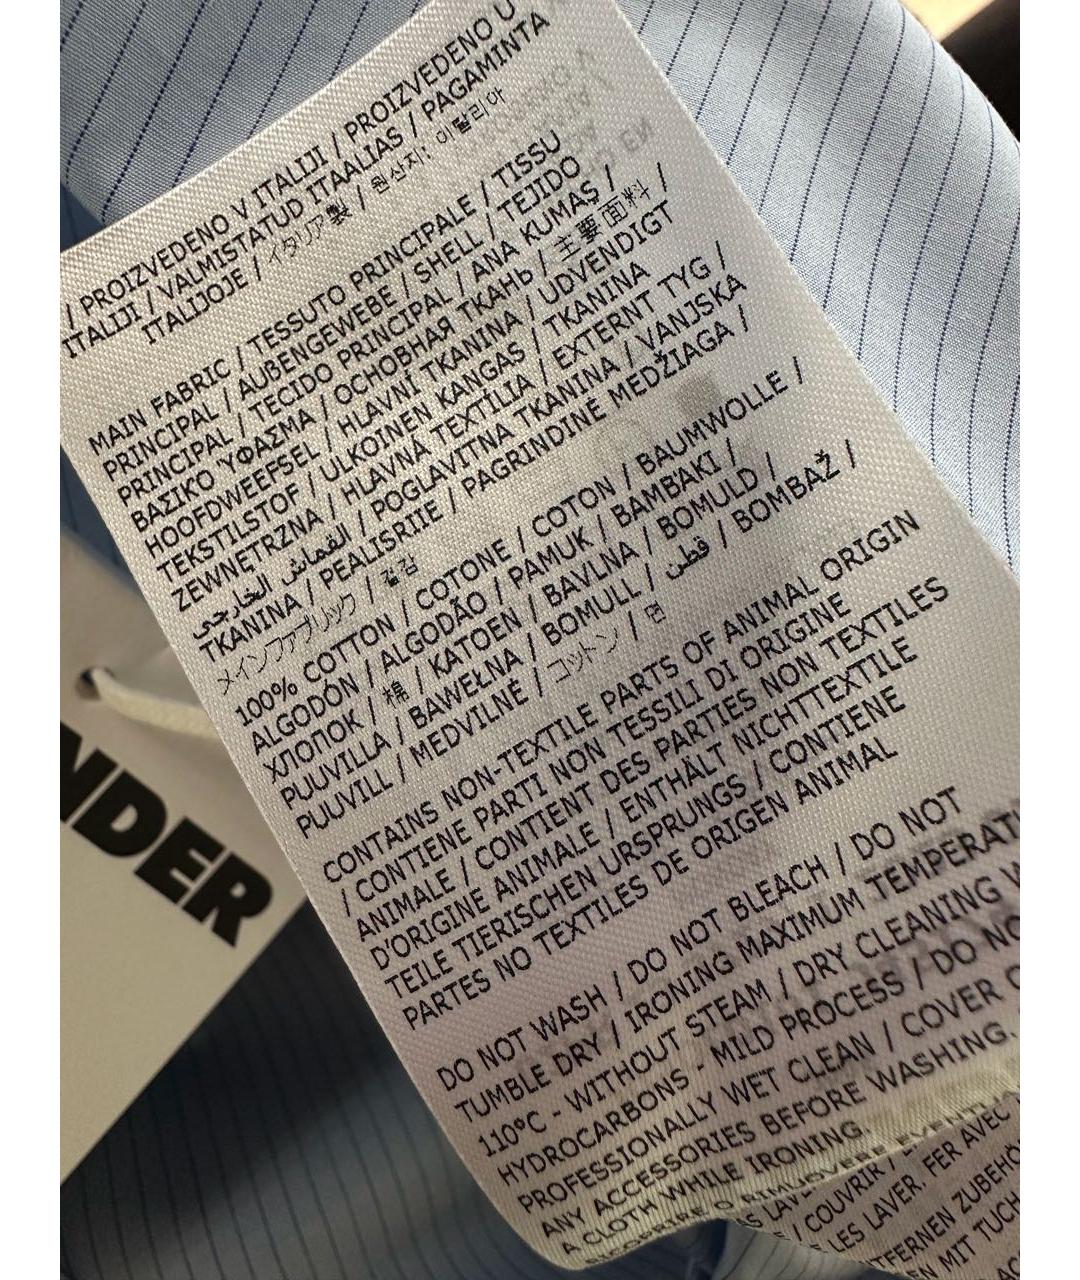 / PROIZVEDENO V ITALIJI / PROIZVEDENO U
ITALIJI / VALMISTATUD ITAALIAS / PAGAMINTA
ITALIJOJE / イタリア製 / 원산지: 이탈리아
MAIN FABRIC / TESSUTO PRINCIPALE / TISSU
PRINCIPAL / AUßENGEWEBE / SHELL / TEJIDO
PRINCIPAL / TECIDO PRINCIPAL / ANA KUMAŞ /
ΒΑΣΙΚΟ ΎΦΑΣΜΑ / ОСНОВНАЯ ТКАНЬ / 主要面料 /
HOOFDWEEFSEL / HLAVNÍ TKANINA / UDVENDIGT
TEKSTILSTOF / ULKOINEN KANGAS / TKANINA
ZEWNĘTRZNA / HLAVNÁ TEXTÍLIA / EXTERNT TYG /
القماش الخارجي / POGLAVITNA TKANINA / VANJSKA
TKANINA / PEALISRIIE / PAGRINDINĖ MEDŽIAGA /
メインファブリック / 겉감
100% COTTON / COTONE / COTON / BAUMWOLLE /
ALGODÓN / ALGODÃO / PAMUK / BAMBAKI /
ХЛОПОК / 棉 / KATOEN / BAVLNA / BOMULD /
PUUVILLA / BAWEŁNA / BOMULL / قطن / BOMBAŽ /
PUUVILL / MEDVILNĖ / コットン / 면
CONTAINS NON-TEXTILE PARTS OF ANIMAL ORIGIN
/ CONTIENE PARTI NON TESSILI DI ORIGINE
ANIMALE / CONTIENT DES PARTIES NON TEXTILES
D'ORIGINE ANIMALE / ENTHÄLT NICHTTEXTILE
TEILE TIERISCHEN URSPRUNGS / CONTIENE
PARTES NO TEXTILES DE ORIGEN ANIMAL
DO NOT WASH / DO NOT BLEACH / DO NOT
TUMBLE DRY / IRONING MAXIMUM TEMPERATU
110°C - WITHOUT STEAM / DRY CLEANING W
HYDROCARBONS - MILD PROCESS / DO NO
PROFESSIONALLY WET CLEAN / COVER O
ANY ACCESSORIES BEFORE WASHING.
A CLOTH WHILE IRONING.
RICOPRIRE O RIMUOVERE EVENT
/ COUVRIR /
LES LAVER. FER AVEC
TFERNEN ZUBEHÖ
EN MIT TUCH
NDER